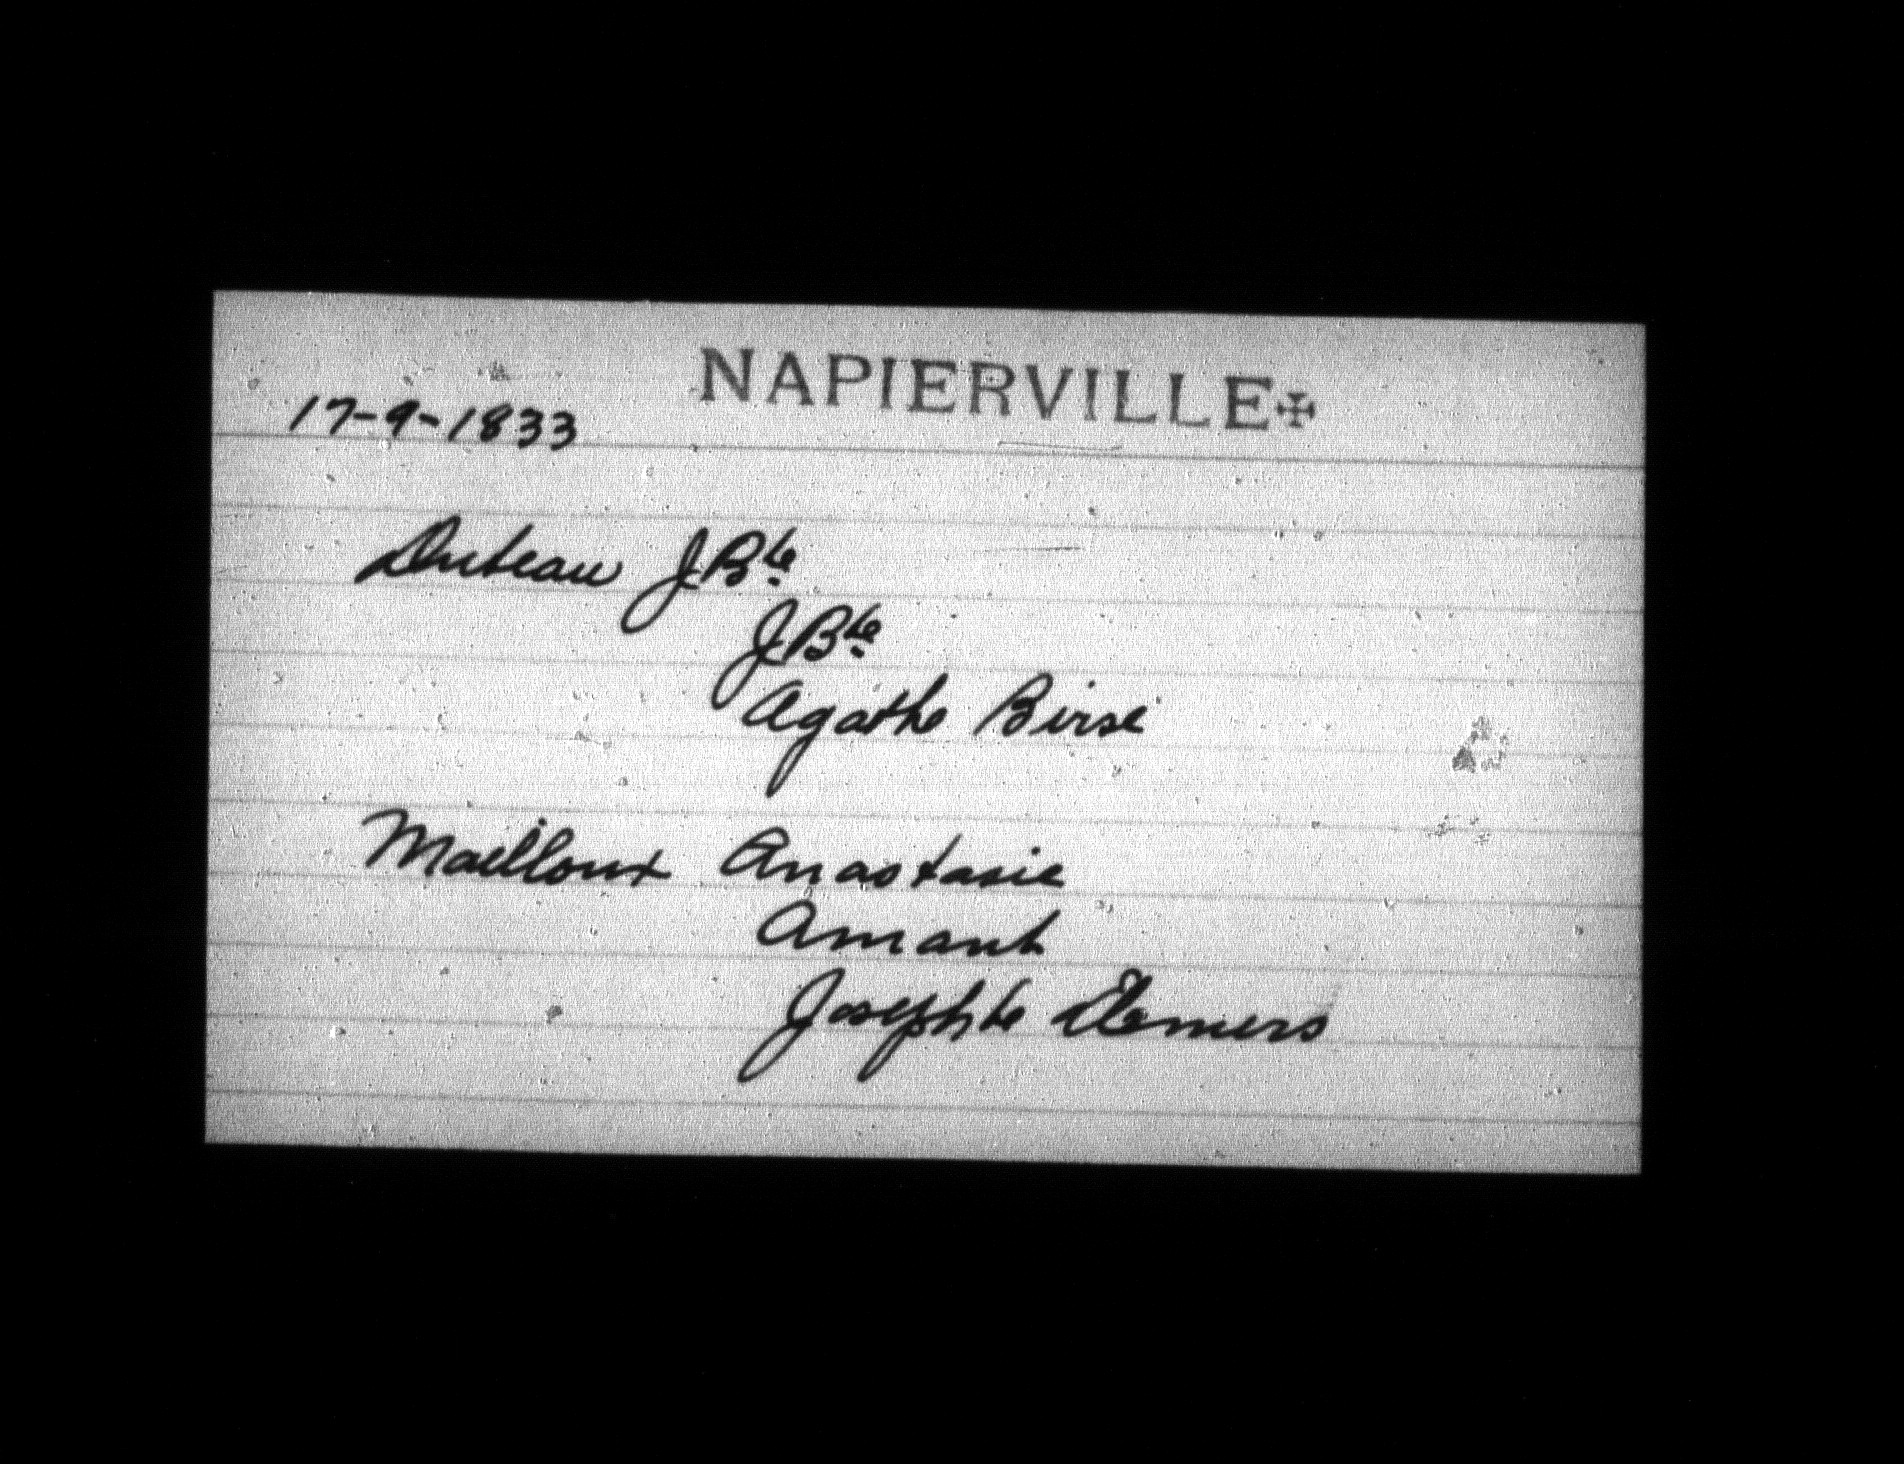 NAPIERVILLE
17-9-1833
Duteau J. Bte
J. Bte
Agathe Birse
Mailloux Anastasie
Amant
Josephte Demers